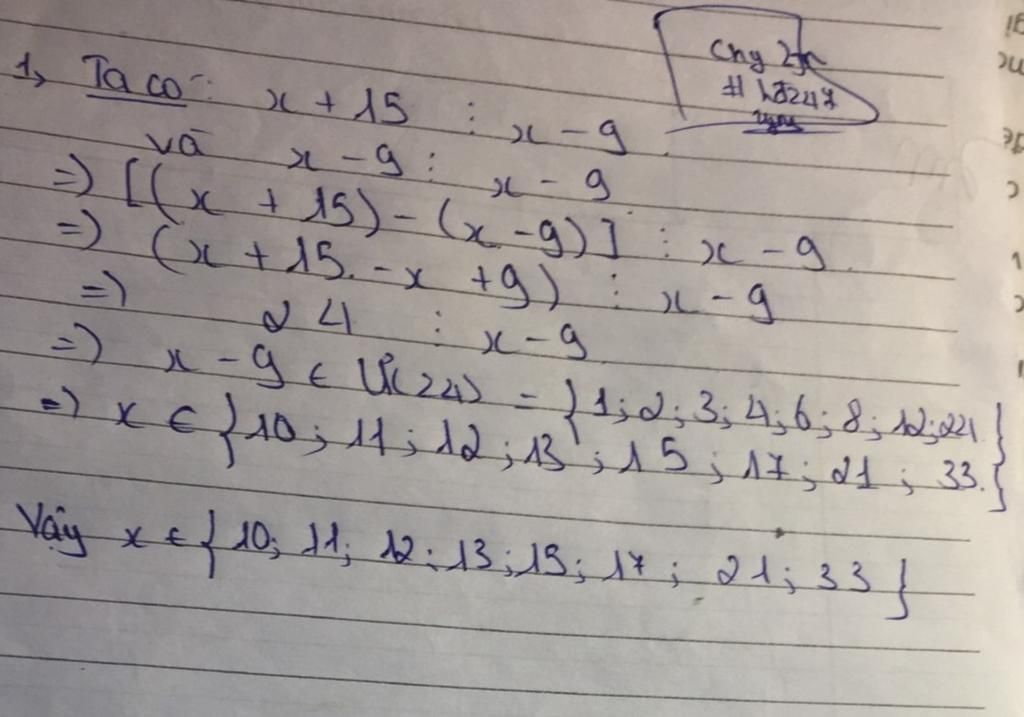 1, Ta có: x + 15 ⋮ x - 9
và x - 9 ⋮ x - 9
=> [(x + 15) - (x - 9)] ⋮ x - 9
=> (x + 15 - x + 9) ⋮ x - 9
=> 24 ⋮ x - 9
=> x - 9 ∈ Ư(24) = {1; 2; 3; 4; 6; 8; 12; 24}
=> x ∈ {10; 11; 12; 13; 15; 17; 21; 33.}
Vậy x ∈ {10; 11; 12; 13; 15; 17; 21; 33}